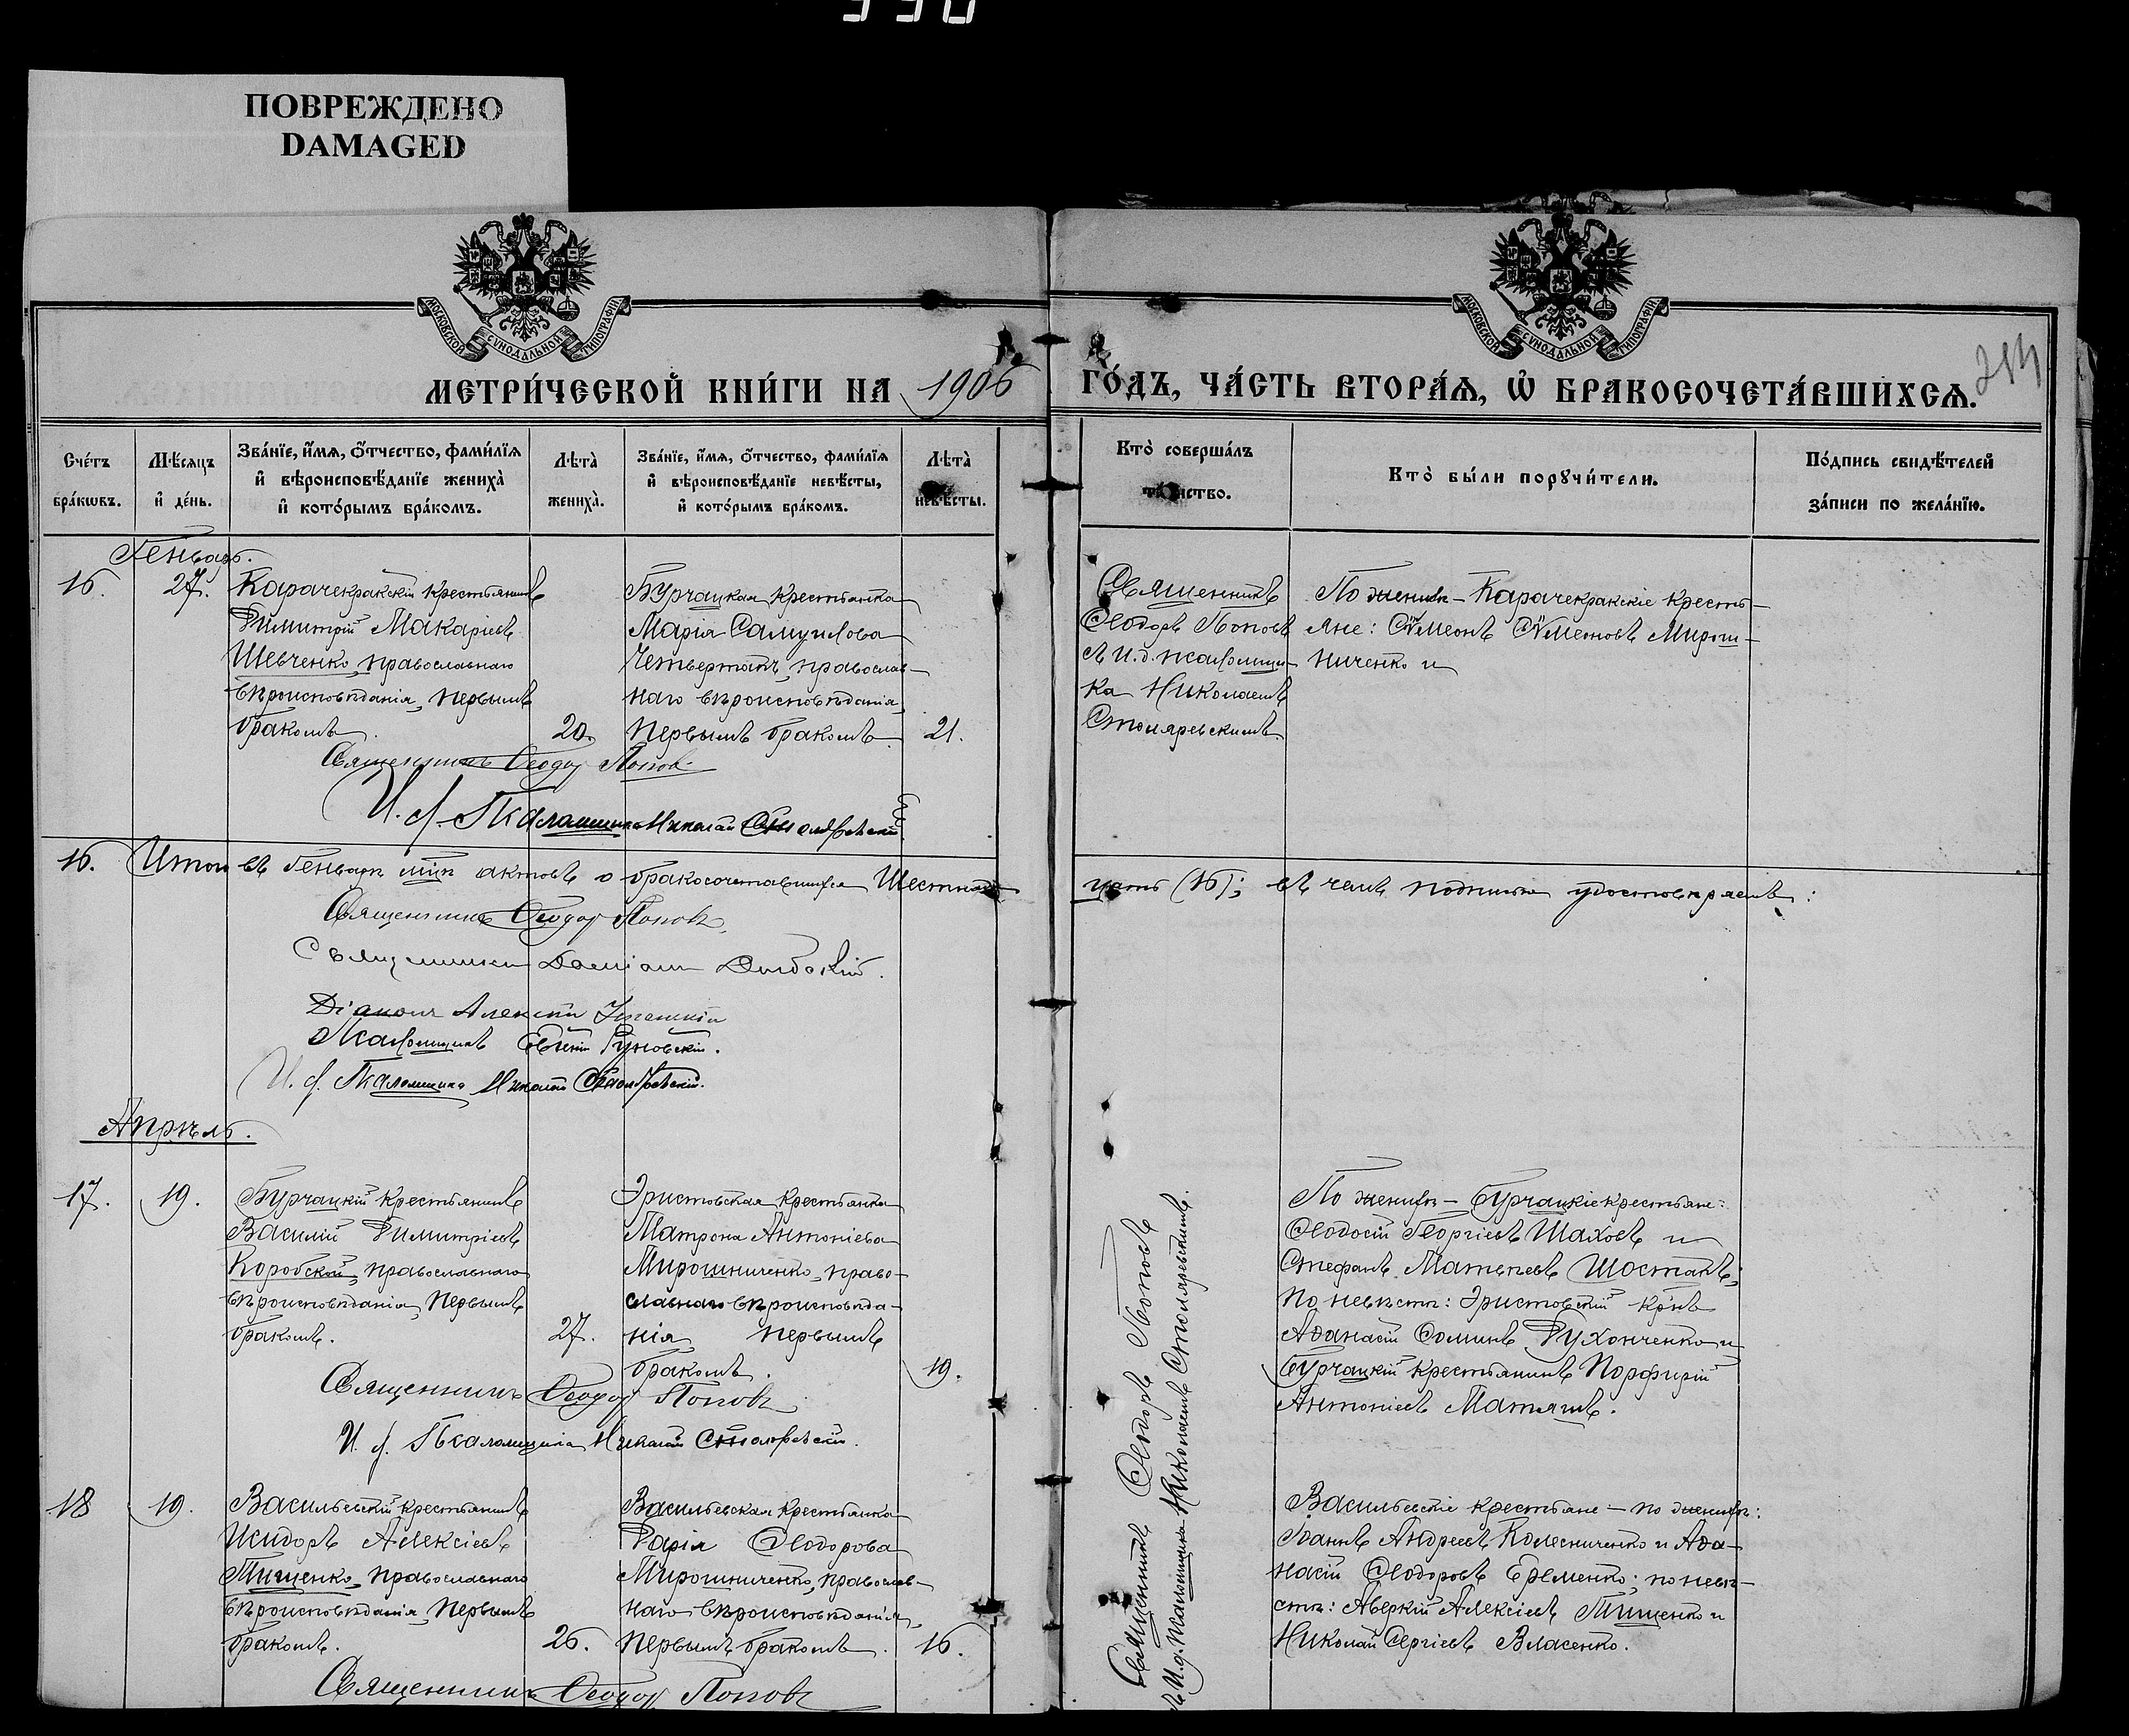 330
ПОВРЕЖДЕНО
DAMAGED
МОСКОВСКОЙ СѴНОДАЛЬНОЙ ТИПОГРАФІИ
МОСКОВСКОЙ СѴНОДАЛЬНОЙ ТИПОГРАФІИ
МЕТРИ́ЧЕСКОЙ КНИ́ГИ НА 1906 ГО́ДЪ, ЧА́СТЬ ВТОРА́Ѧ, Ѡ҆ БРАКОСОЧЕТА́ВШИХСѦ.
Сче́тъ бра́кѡвъ.
Мѣ́сяцъ и҆ де́нь.
Зва́нїе, и҆́мѧ, ѻ҆́тчество, фами́лїѧ
и҆ вѣроисповѣ́данїе жениха̀
и҆ кото́рымъ бра́комъ.
Лѣта̀ жениха̀.
Зва́нїе, и҆́мѧ, ѻ҆́тчество, фами́лїѧ
и҆ вѣроисповѣ́данїе невѣ́сты,
и҆ кото́рымъ бра́комъ.
Лѣта̀ невѣ́сты.
Кто̀ соверша́лъ та́инство.
Кто̀ бы́ли порꙋчи́тели.
По́дпись свидѣ́телей
за́писи по жела́нїю.
Генварь.
16.
27.
Карачекракскій крестьянинъ
Димитрій Макаріевъ
Шевченко, православнаго
вѣроисповѣданія, первымъ
бракомъ.
20.
Бурчацкая крестьянка
Марія Самуилова
Четвертакъ, православ-
наго вѣроисповѣданія,
первымъ бракомъ.
21.
Священникъ
Ѳеодоръ Поповъ
съ И.д. псаломщи-
ка Николаемъ
Столяревскимъ.
По женихѣ – Карачекракскіе кресть-
яне: Сѵмеонъ Сѵмеоновъ Мирош-
ниченко и
Священникъ Ѳеодор Поповъ
И. д. Псаломщика Николай Столяревскій
16. Итого въ Генварѣ мцѣ актовъ о бракосочетавшихся Шестнад-
цать (16); въ чемъ подписью удостовѣряемъ:
Священникъ Ѳеодор Поповъ
Священникъ Даміанъ
Діаконъ Алексѣй
Псаломщикъ Руновскій.
И. д. Псаломщика Николай Столяревскій.
Апрѣль.
17.
19.
Бурчацкій крестьянинъ
Василій Димитріевъ
Коробской, православнаго
вѣроисповѣданія, первымъ
бракомъ.
27.
Эристовская крестьянка
Матрона Антоніева
Мирошниченко, право-
славнаго вѣроисповѣда-
нія, первымъ
бракомъ.
19.
Священникъ Ѳеодоръ Поповъ
съ И.д. псаломщика Николаемъ Столяревскимъ.
По женихѣ – Бурчацкіе крестьяне:
Ѳеодосій Георгіевъ Шаховъ и
Стефанъ Матѳеевъ Шостакъ;
по невѣстѣ: Эристовскій кр-нъ
Аѳанасій Ѳоминъ Духонченко и
Бурчацкій крестьянинъ Порфирій
Антоніевъ Матяшъ.
Священникъ Ѳеодор Поповъ
И. д. Псаломщика Николай Столяревскій.
18
19.
Васильевскій крестьянинъ
Исидоръ Алексіевъ
Тищенко, православнаго
вѣроисповѣданія, первымъ
бракомъ.
26.
Васильевская крестьянка
Дарія Ѳеодорова
Мирошниченко, православ-
наго вѣроисповѣданія,
первымъ бракомъ.
16.
Васильевскіе крестьяне – по женихѣ:
Іоаннъ Андреевъ Колесниченко и Аѳа-
насій Ѳеодоровъ Еременко; по невѣ-
стѣ: Аверкій Алексіевъ Тищенко и
Николай Сергіевъ Власенко.
Священникъ Ѳеодор Поповъ